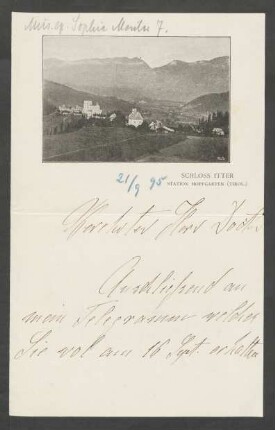 Sophie Menter 7.
SCHLOSS ITTER
STATION HOPFGARTEN (TIROL.)
21/9 95
Verehrter Herr Doctor
Anschliessend an
mein Telegramm welches
Sie wol am 16 Sept. erhalten